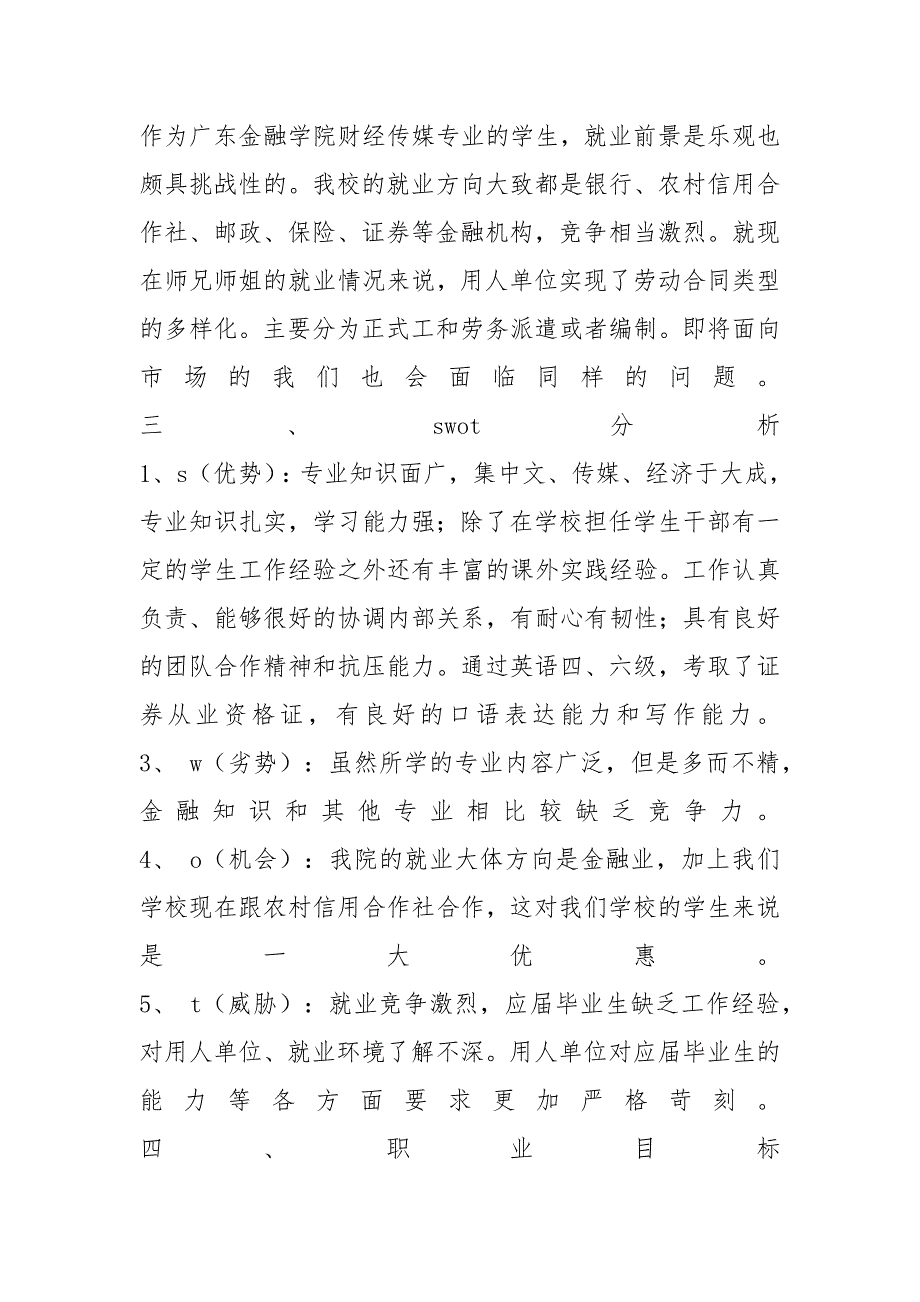 作为广东金融学院财经传媒专业的学生，就业前景是乐观也
颇具挑战性的。我校的就业方向大致都是银行、农村信用合
作社、邮政、保险、证券等金融机构，竞争相当激烈。就现
在师兄师姐的就业情况来说，用人单位实现了劳动合同类型
的多样化。主要分为正式工和劳务派遣或者编制。即将面向
市场的我们也会面临同样的问题。
三、swot分析
1、s（优势）：专业知识面广，集中文、传媒、经济于大成，
专业知识扎实，学习能力强；除了在学校担任学生干部有一
定的学生工作经验之外还有丰富的课外实践经验。工作认真
负责、能够很好的协调内部关系，有耐心有韧性；具有良好
的团队合作精神和抗压能力。通过英语四、六级，考取了证
券从业资格证，有良好的口语表达能力和写作能力。
3、 w（劣势）：虽然所学的专业内容广泛，但是多而不精，
金融知识和其他专业相比较缺乏竞争力。
4、 o（机会）：我院的就业大体方向是金融业，加上我们
学校现在跟农村信用合作社合作，这对我们学校的学生来说
是一大优惠。
5、 t（威胁）：就业竞争激烈，应届毕业生缺乏工作经验，
对用人单位、就业环境了解不深。用人单位对应届毕业生的
能力等各方面要求更加严格苛刻。
四、职业目标